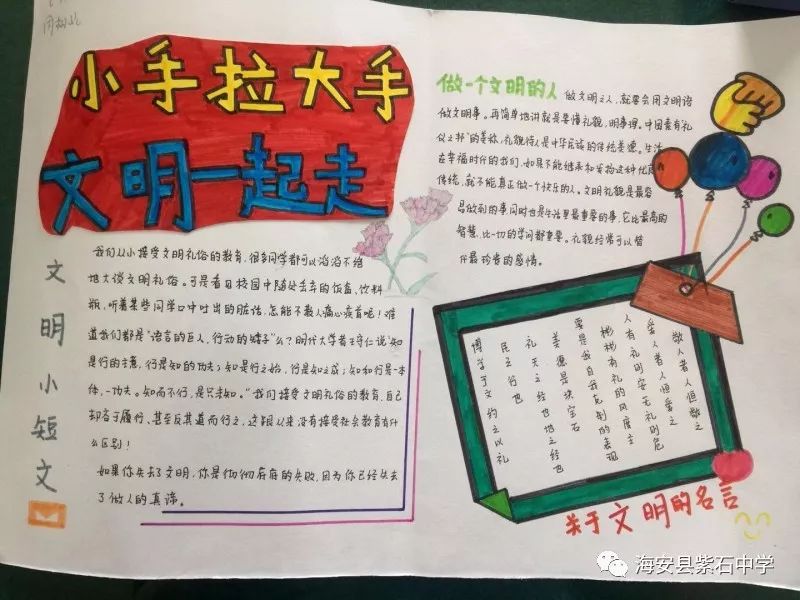 小手拉大手
文明一起走
文明小短文
我们从小接受文明礼俗的教育,很多同学都可以滔滔不绝
地大谈文明礼俗。可是看日校园中随处丢弃的饭盒、饮料
瓶,听着某些同学口中吐出的脏话,怎能不教人痛心疾首呢!难
道我们都是"语言的巨人,行动的矮子"么?明代大学者王守仁说"知
是行的主意,行是知的功夫;知是行之始,行是知之成;知和行是一本
体,一功夫。知而不行,是只未知。"我们接受文明礼俗的教育,自己
却吝于履行、甚至反其道而行之,这跟以来没有接受社会教育有什
么区别!
如果你失去了文明,你是彻彻底底的失败,因为你已经失去
了做人的真谛。
做一个文明的人
做文明之人,就要会用文明语
做文明事。再简单地讲就是要懂礼貌,明事理。中国素有礼
仪之邦"的美称,礼貌待人是中华民族的传统美德。生活
在幸福时代的我们,如果不能继承和发扬这种优良
传统,就不能真正做一个快乐的人。文明礼貌是最容
易做到的事同时也是生活里最重要的事,它比最高的
智慧,比一切的学问都重要。礼貌经常可以替
代最珍贵的感情。
敬人者人恒敬之
爱人者人恒爱之
人有礼则安无礼则危
彬彬有礼的风度主
要是自我克制的表现
美德是块宝石
礼天之经也地之经也
民之行也
博学于文 约之以礼
关于文明的名言
海安县紫石中学